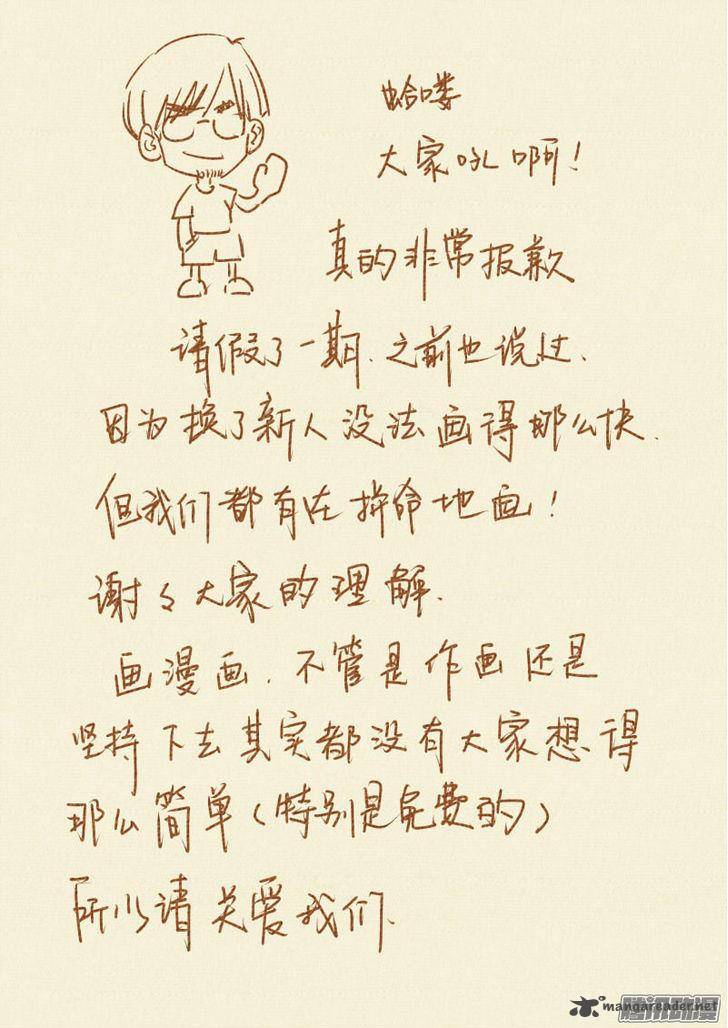 蛤喽
大家吼啊！
真的非常报歉
请假了一期.之前也说过.
因为换了新人没法画得那么快.
但我们都有在拼命地画！
谢々大家的理解.
画漫画.不管是作画还是
坚持下去其实都没有大家想得
那么简单（特别是免费的）
所以请关爱我们.
mangareader.net
腾讯动漫